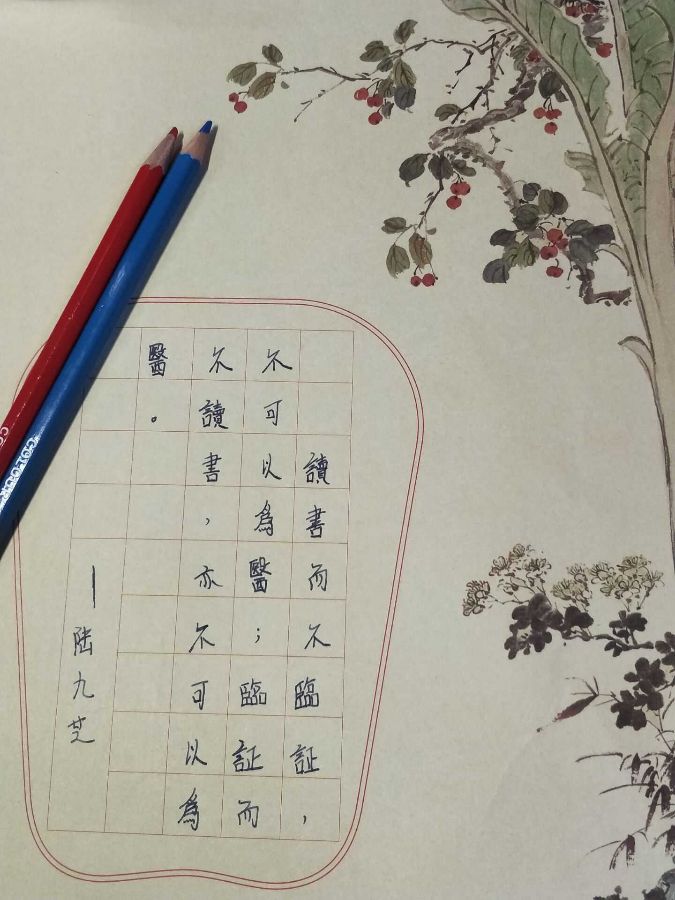 讀書而不臨証，
不可以為醫；臨証而
不讀書，亦不可以為
醫。
—陆九芝